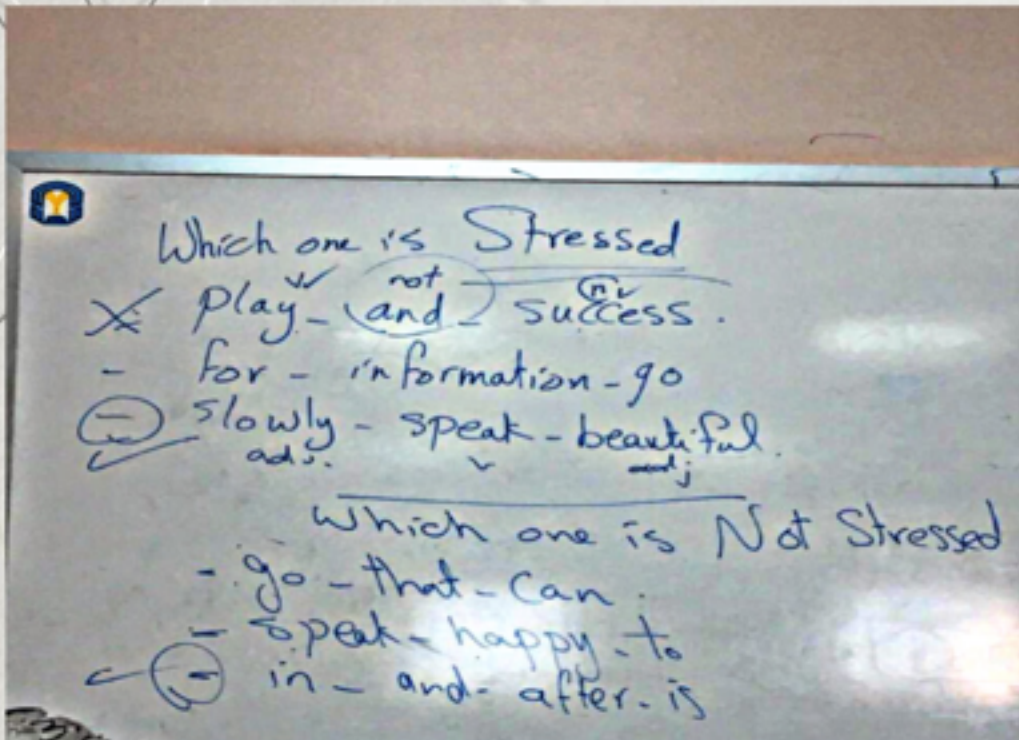 Which one is Stressed
not n
play - and - success.
- for - information - go
- slowly - speak - beautiful.
adv. v adj
Which one is Not Stressed
- go - that - can.
- speak - happy - to
- in - and - after - is